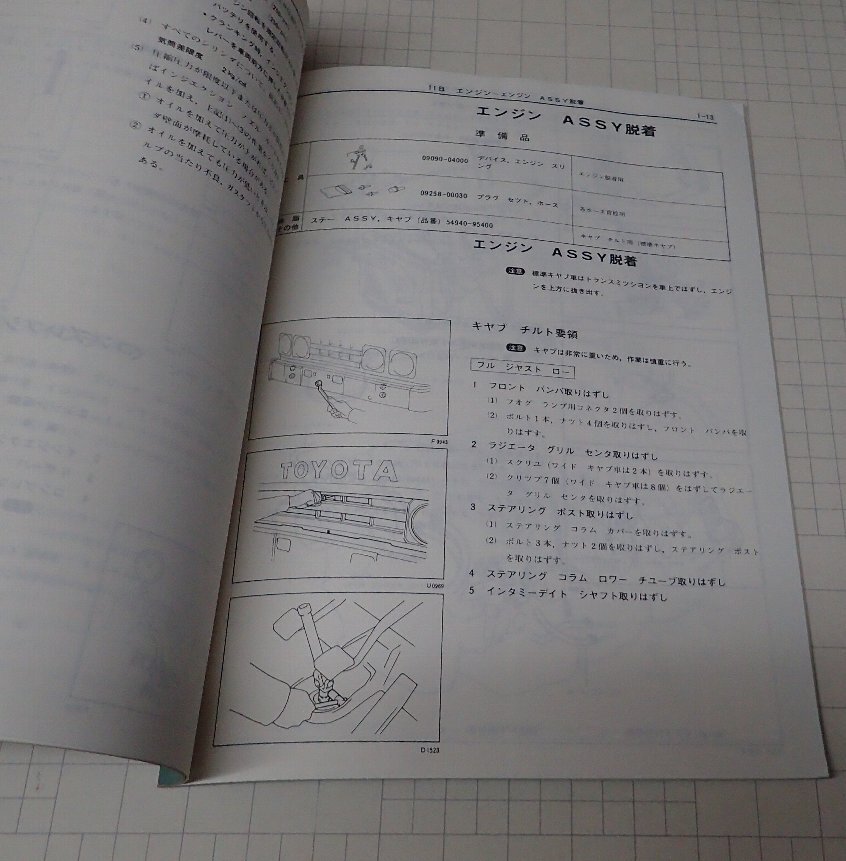 (4) すべてのシリンダについ
気筒差限度 2 kg/cm²
(5) 圧縮圧力が限度以下または
① オイルを加えて圧力が
ダ壁面が摩耗している場合が
② オイルを加えても圧力が
ルブの当たり不良、ガスケット
ある。
11B エンジン－エンジン ASSY脱着
1-13
エンジン ASSY脱着
準 備 品
具
09090-04000 デバイス，エンジン スリング
エンジン脱着用
09258-00030 プラグ セット，ホース
各ホース盲栓用
その他
ステー ASSY，キャブ（品番）54940-95400
キャブ チルト用（標準キャブ）
エンジン ASSY脱着
注意 標準キャブ車はトランスミッションを車上ではずし，エンジ
ンを上方に抜き出す。
キャブ チルト要領
注意 キャブは非常に重いため，作業は慎重に行う。
フル ジャスト ロー
1 フロント バンパ取りはずし
(1) フォグ ランプ用コネクタ2個を取りはずす。
(2) ボルト1本，ナット4個を取りはずし，フロント バンパを取
りはずす。
2 ラジエータ グリル センタ取りはずし
(1) スクリュ（ワイド キャブ車は2本）を取りはずす。
(2) クリップ7個（ワイド キャブ車は8個）をはずしてラジエー
タ グリル センタを取りはずす。
3 ステアリング ポスト取りはずし
(1) ステアリング コラム カバーを取りはずす。
(2) ボルト3本，ナット2個を取りはずし，ステアリング ポスト
を取りはずす。
4 ステアリング コラム ロワー チューブ取りはずし
5 インタミーデイト シャフト取りはずし
TOYOTA
U0969
D1523